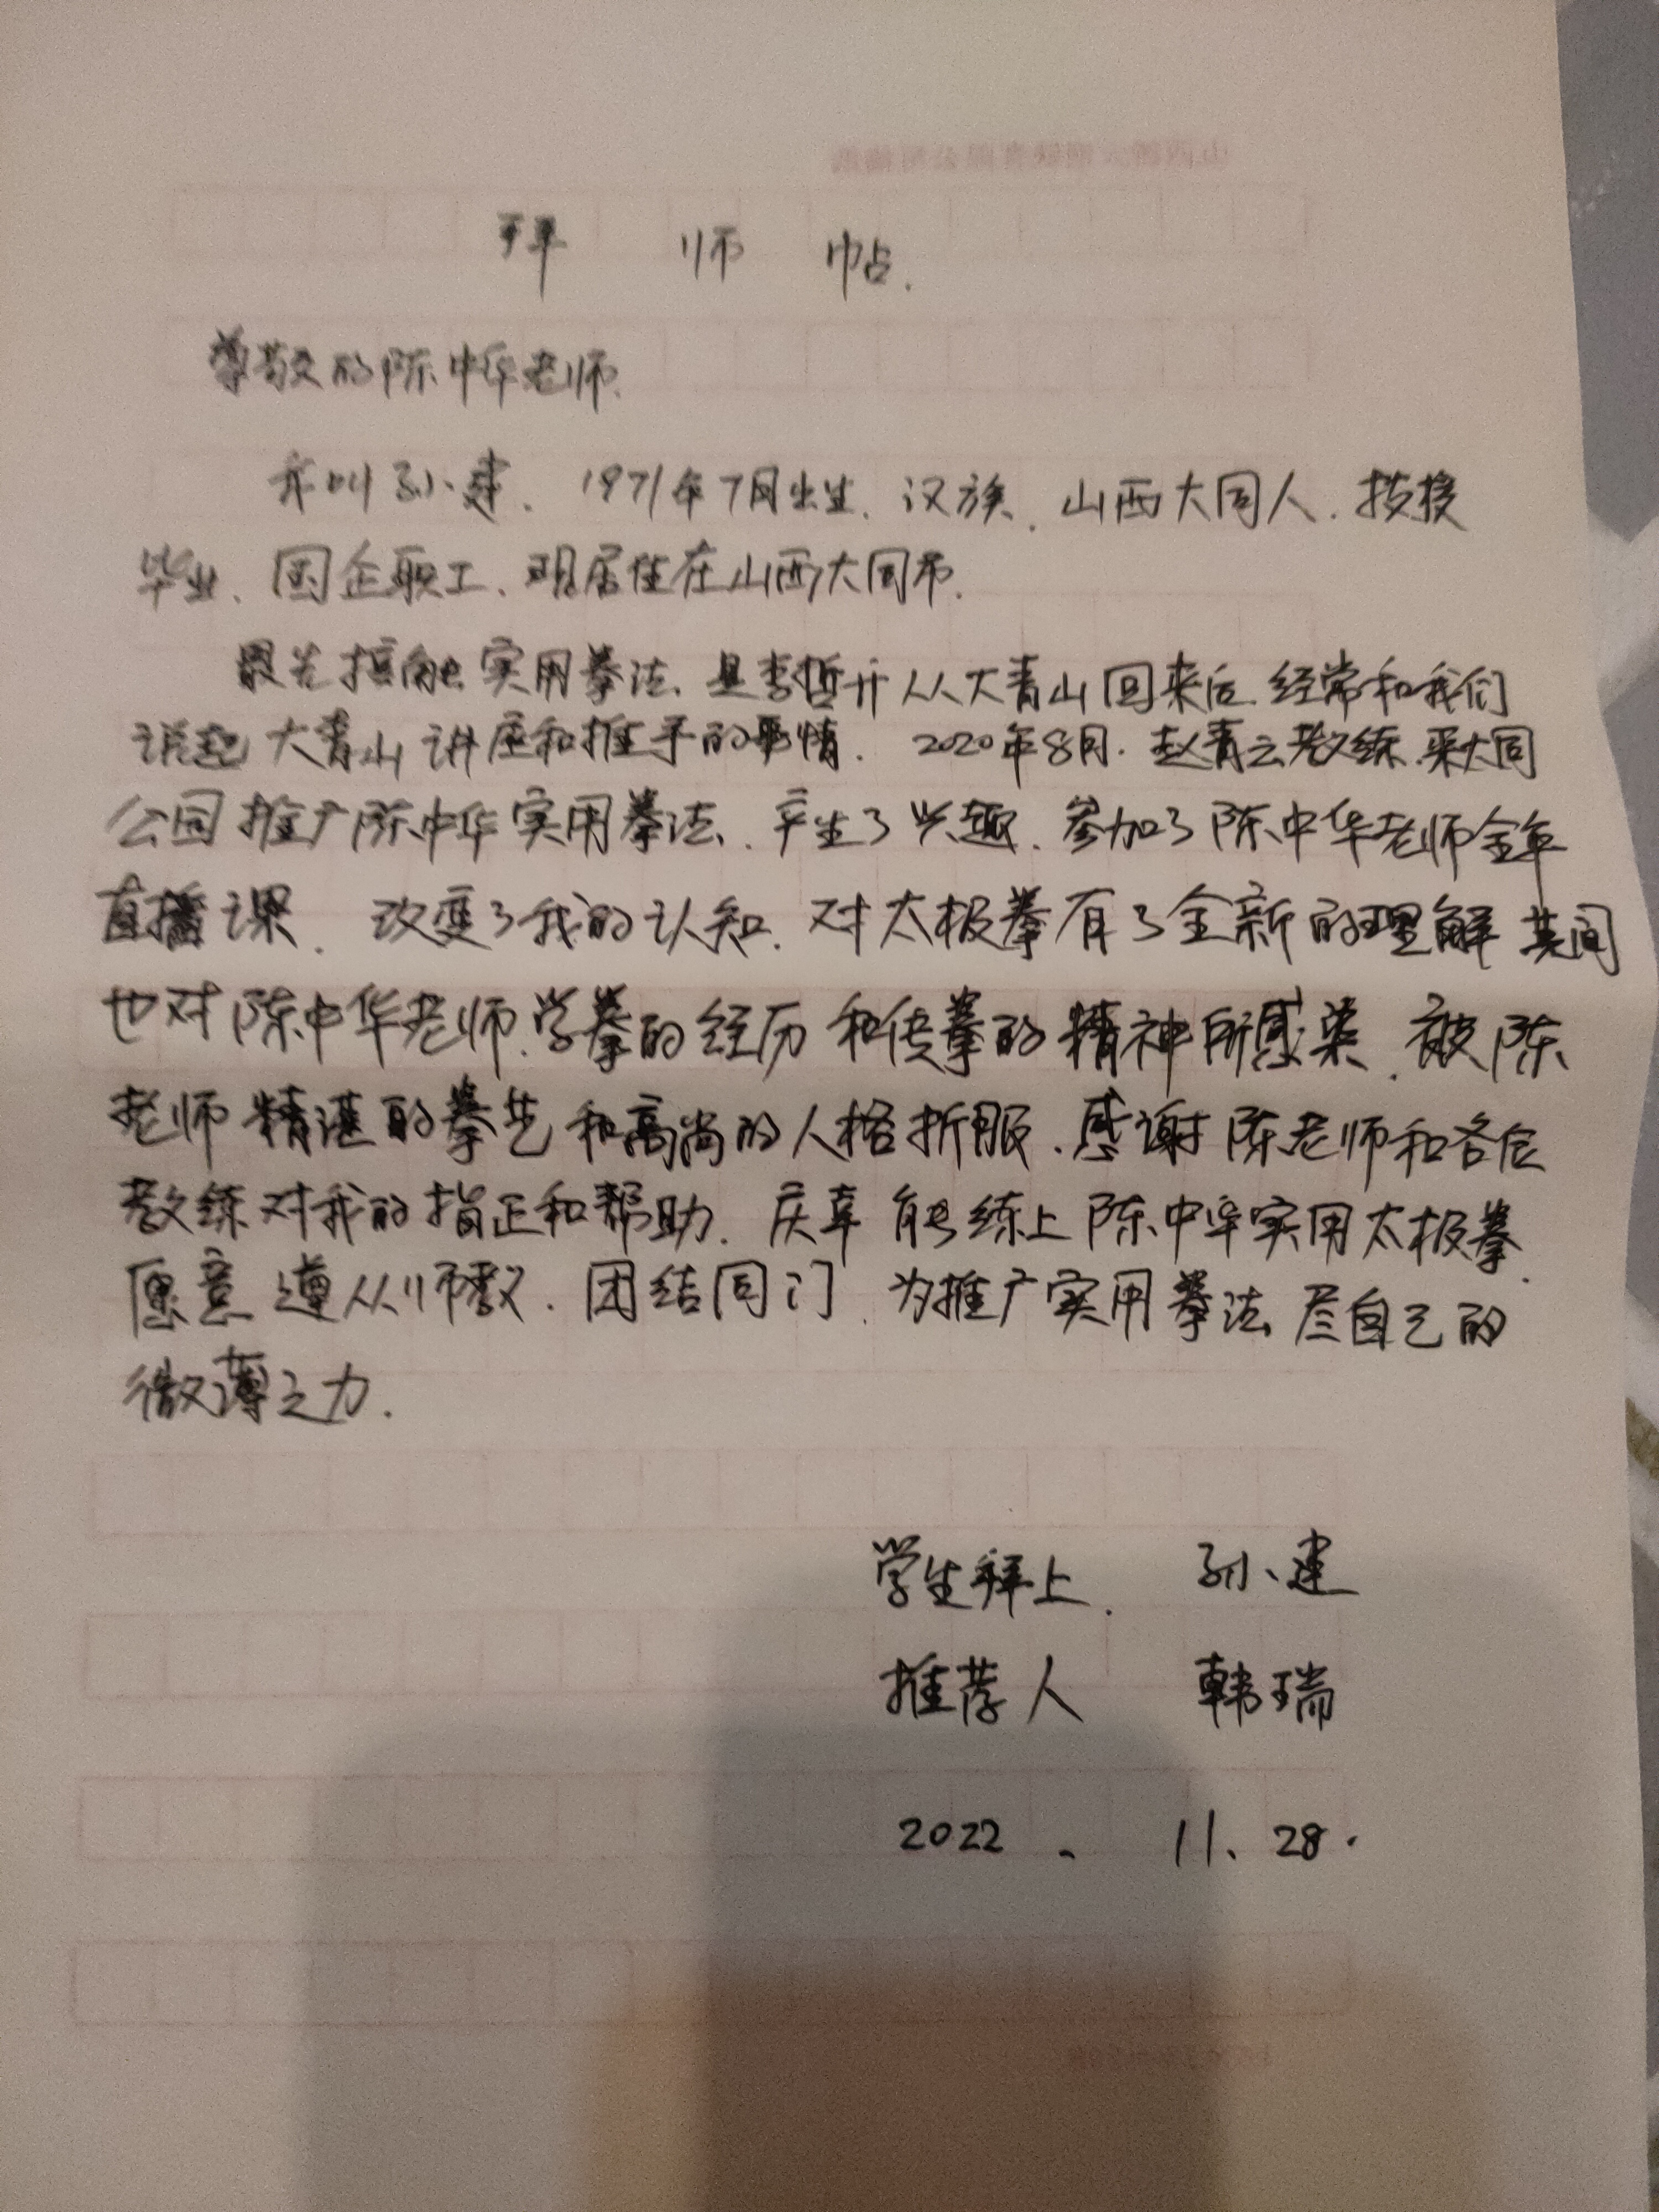 拜师帖.
尊敬的陈中华老师.
我叫孙建、1971年7月出生、汉族、山西大同人、技校
毕业、国企职工、现居住在山西大同市.
最先接触实用拳法、是李哲开从大青山回来后 经常和我们
说起大青山讲座和推手的事情. 2020年8月.赵青云教练.来大同
公园推广陈中华实用拳法、产生了兴趣、参加了陈中华老师全年
直播课、改变了我的认知、对太极拳有了全新的理解 其间
也对陈中华老师.学拳的经历和传拳的精神所感染、被陈
老师精湛的拳艺和高尚的人格折服、感谢陈老师和各位
教练对我的指正和帮助、庆幸能练上陈中华实用太极拳.
愿意遵从师教、团结同门、为推广实用拳法尽自己的
微薄之力.
学生拜上. 孙建
推荐人 韩瑞
2022、11、28.